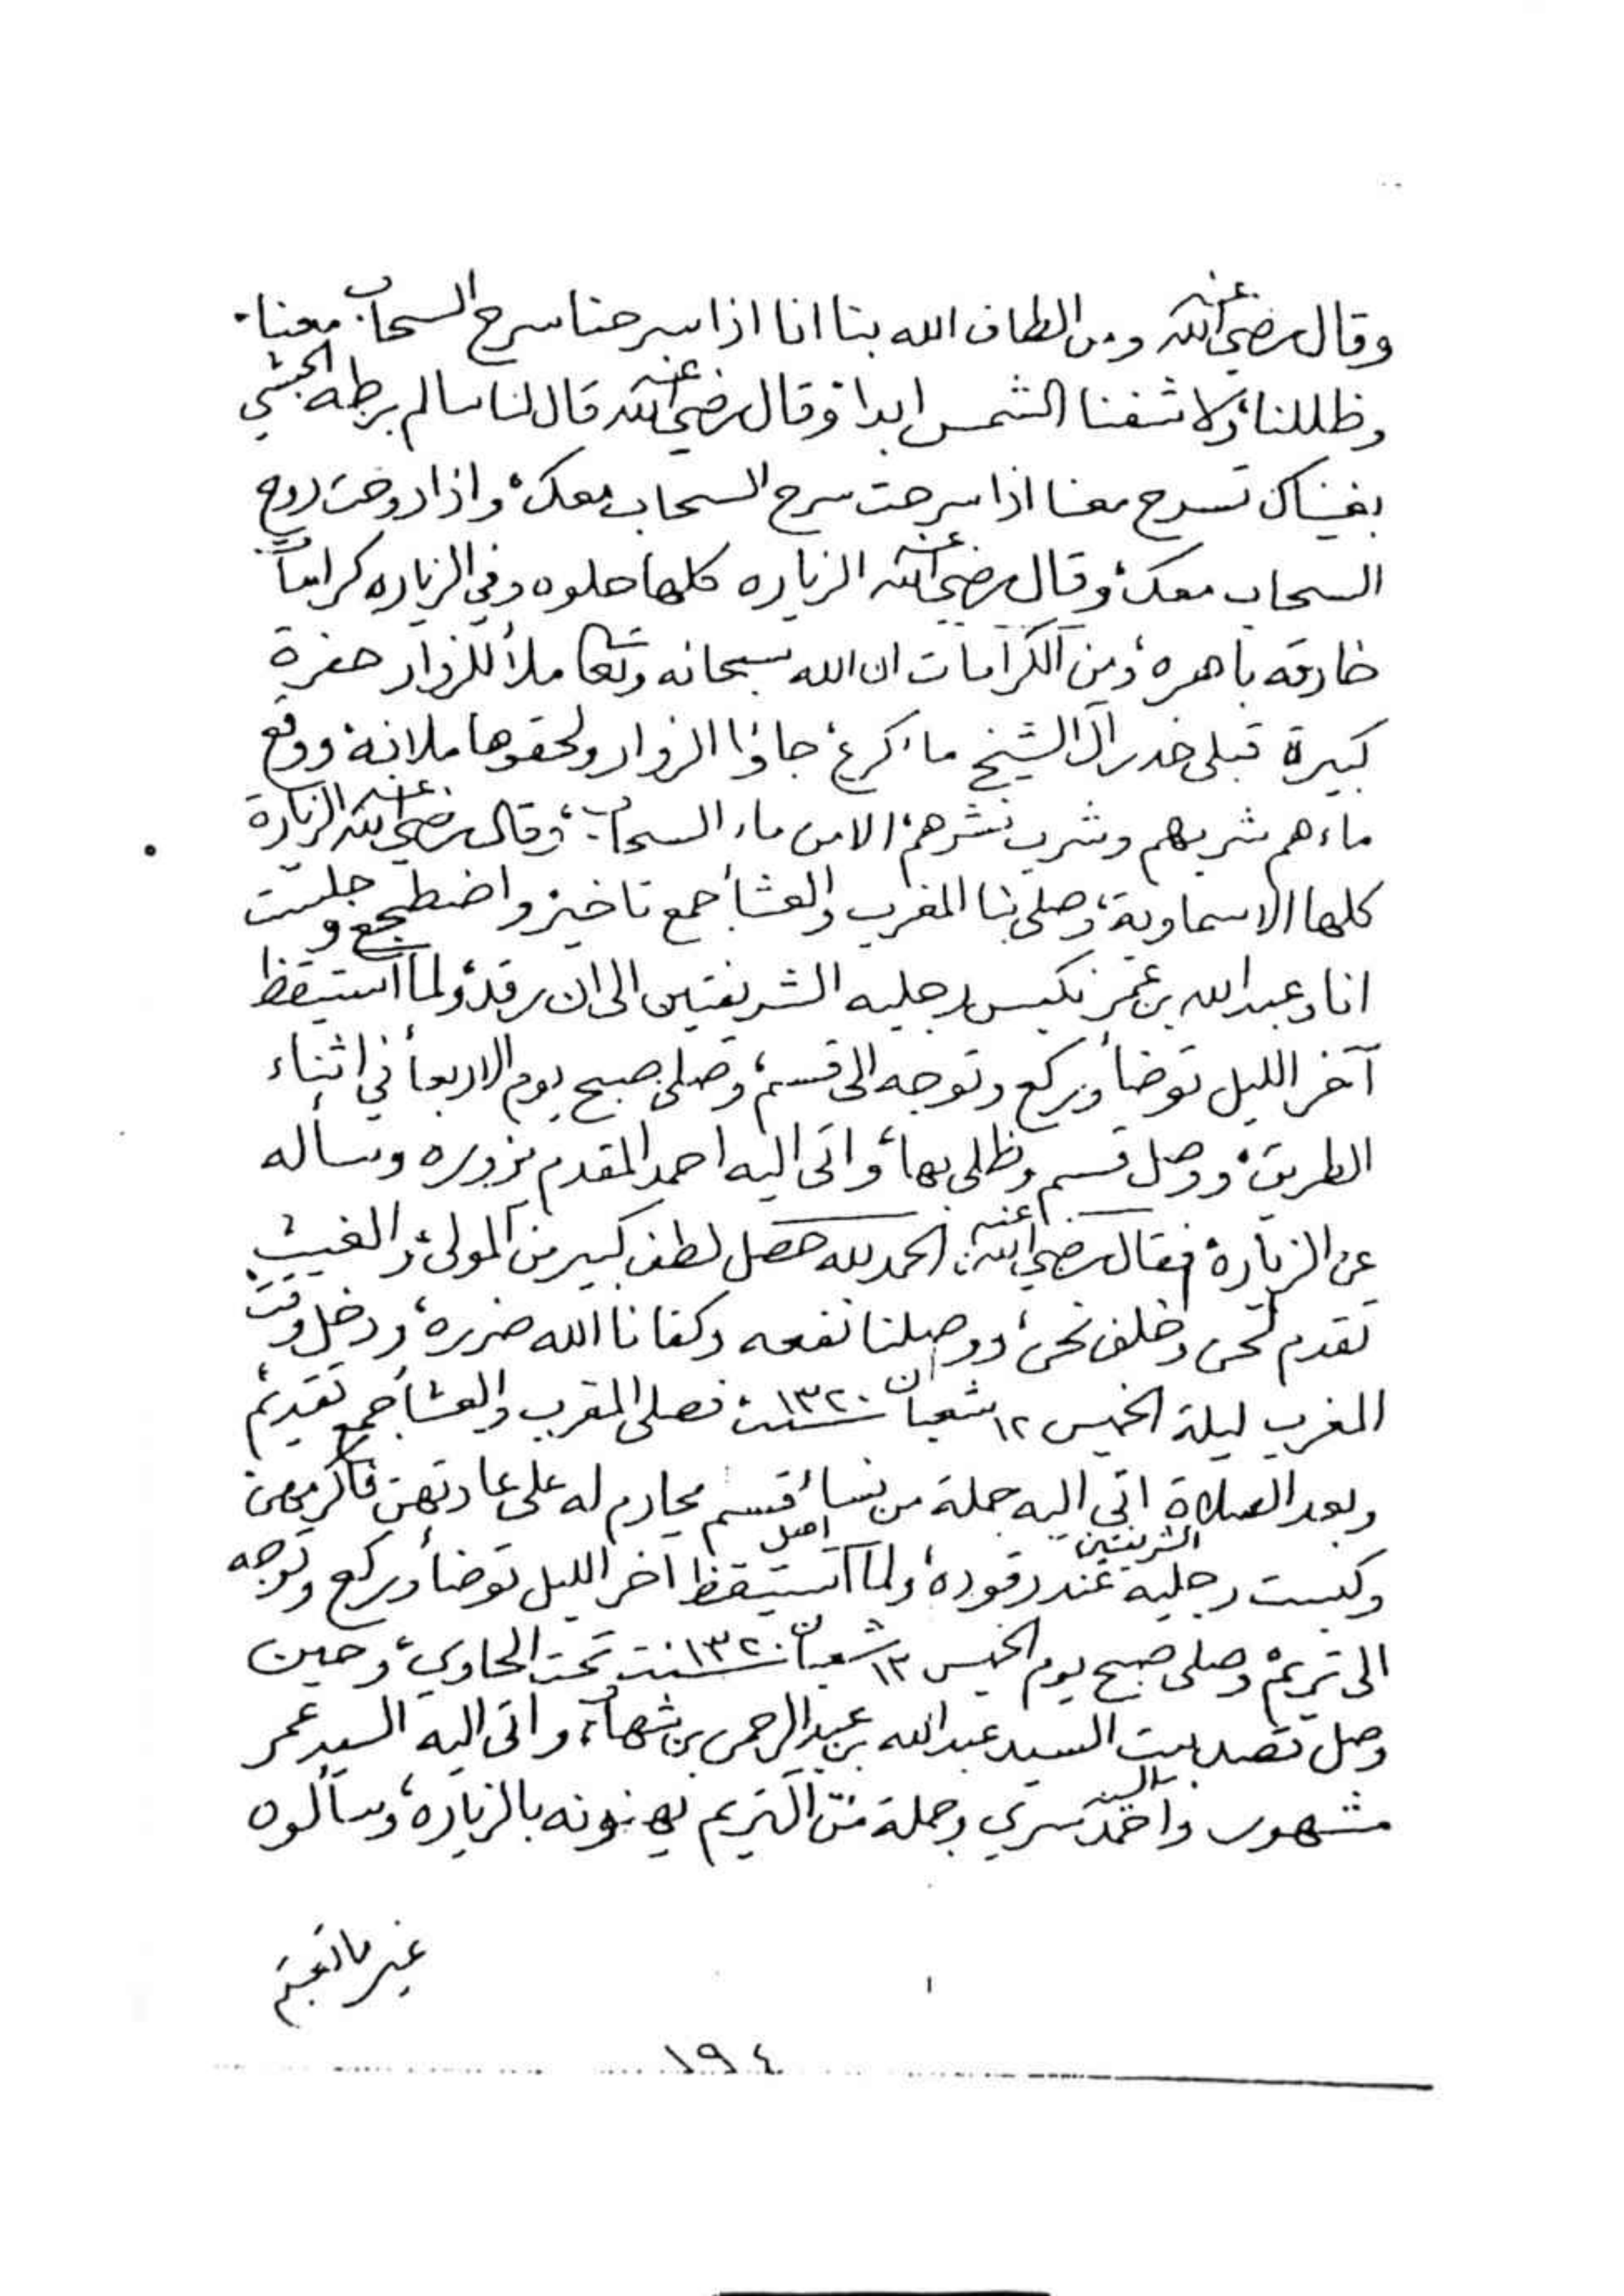 وقال رضي الله عنه ومن الطاف الله بنا انا اذا سرحنا سرح السحاب معنا،
وظللنا، ولا شفنا الشمس ابدا، وقال رضي الله عنه قال لنا سالم بن طه الحبشي
بغيناك تسرح معنا اذا سرحت سرح السحاب معك، واذا روحت روح
السحاب معك، وقال رضي الله عنه الزياره كلها حلوه وفي الزياره كرامات
خارقه باهره، ومن الكرامات ان الله سبحانه وتعالى ملأ للزوار حفرة
كبيرة قبلي خدر آل الشيخ ماء كرع، جاؤا الزوار ولحقوها ملانة، ووقع
ماءهم شربهم وشرب نشرهم، الا من ماء السحاب، وقال رضي الله عنه الزيارة
كلها الا سماوية، وصلى بنا المغرب والعشأ جمع تاخير واضطجع وجلست
انا وعبدالله بن عمر نكبس رجليه الشريفتين الى ان رقد، ولما استيقظ
آخر الليل توضأ وركع وتوجه الى قسم، وصلى صبح يوم الاربعأ في اثناء
الطريق، ووصل قسم وظلى بها، واتى اليه احمد المقدم يزوره وسأله
عن الزيارة فقال رضي الله عنه: الحمد لله حصل لطف كبير من المولى، والغيث
تقدم نحن وخلف نحن، ووصلنا نفعه وكفانا الله ضرره، ودخل وقت
المغرب ليلة الخميس ١٢ شعبان سنت ١٣٢٠ فصلى المغرب والعشأ جمع تقديم،
وبعد الصلاة اتى اليه جملة من نسأ اهل قسم محارم له على عادتهن فاكرمهن
وكبست رجليه الشريفتين عند رقوده، ولما استيقظ آخر الليل توضأ وركع وتوجه
الى تريم، وصلى صبح يوم الخميس ١٣ شعبان سنت ١٣٢٠ تحت الحاوي، وحين
وصل قصد بيت السيد عبدالله بن عبدالرحمن بن شهاب، واتى اليه السيد عمر
مشهور والسيد احمد سري وجملة من آل تريم يهنونه بالزياره، وسألوه
١٩٤